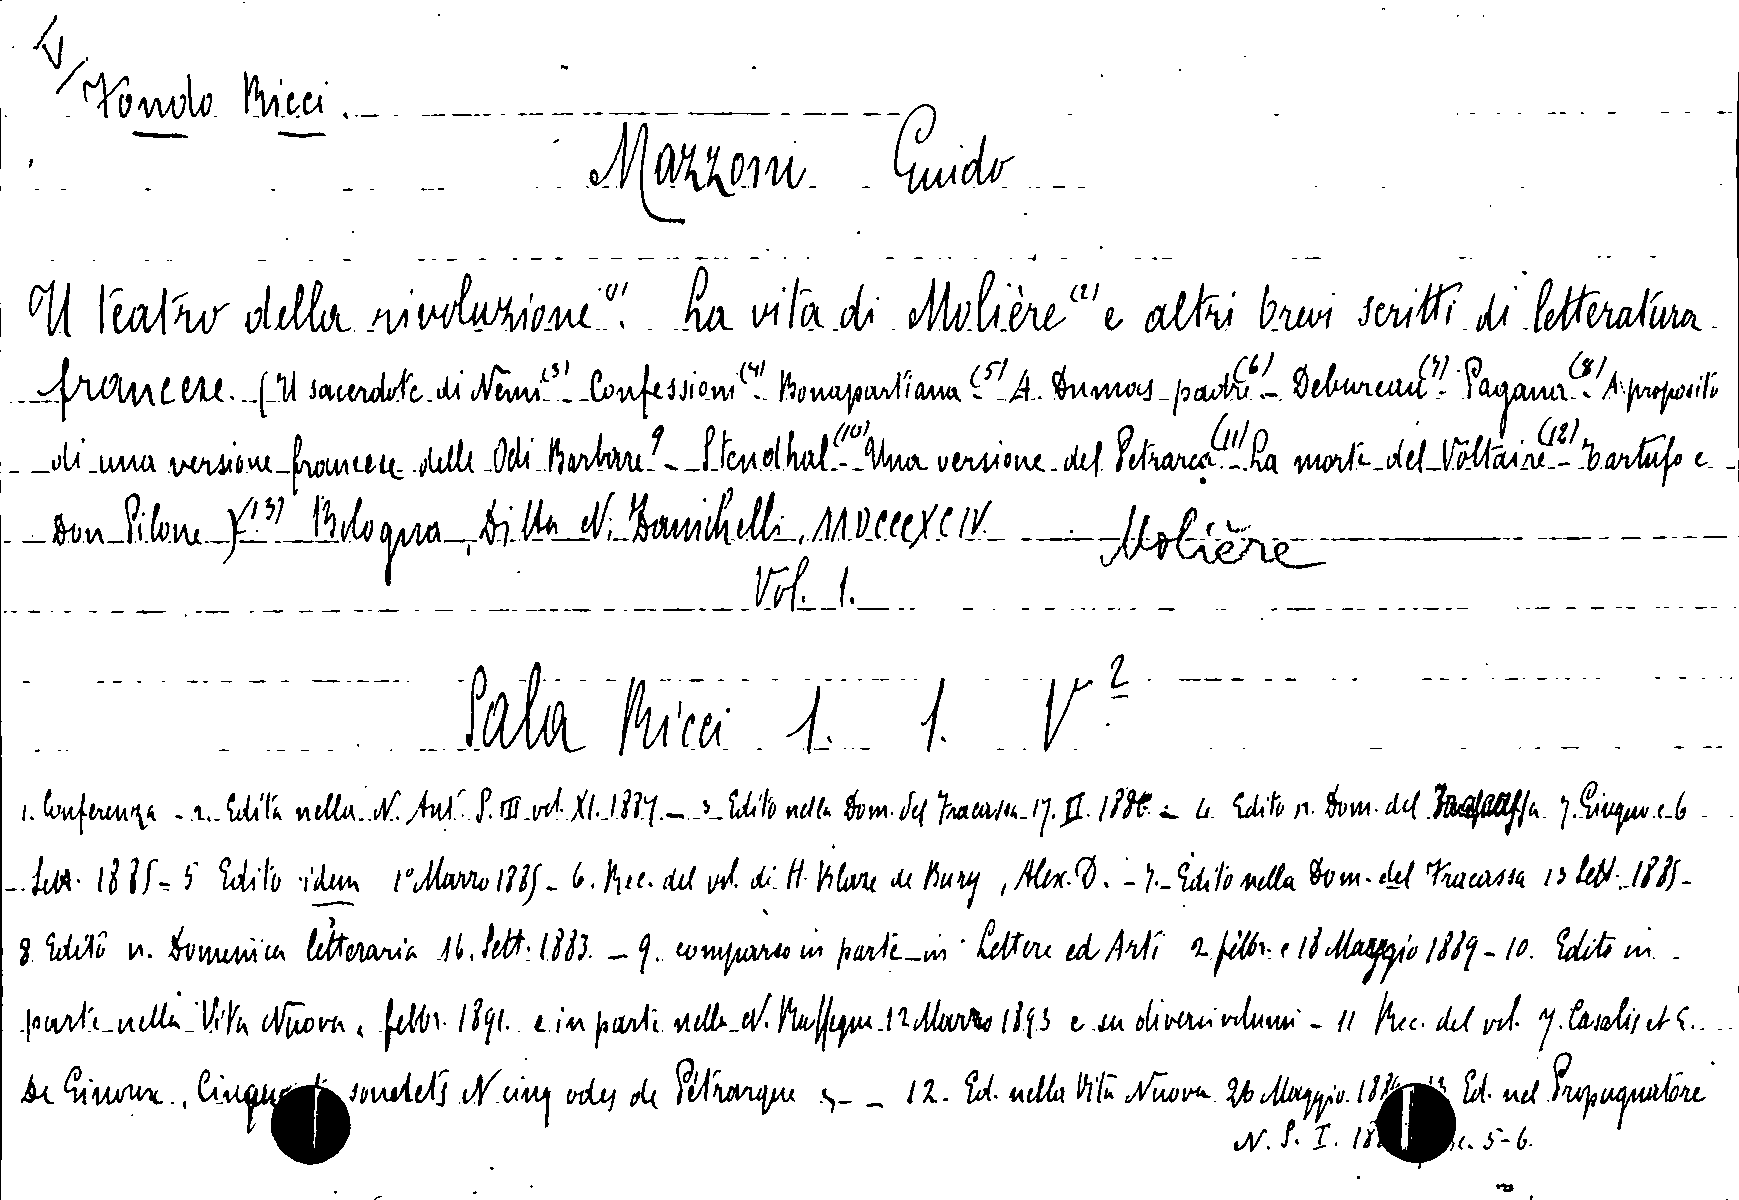 Fondo Ricci.
Mazzoni Guido
Il teatro della rivoluzione (1). La vita di Molière (2) e altri brevi scritti di letteratura
francese. (Il sacerdote di Nemi (3) - Confessioni (4) - Bonapartiana (5) A. Dumas padre (6) - Debureau (7) - Pagana (8) - A proposito
di una versione francese delle Odi Barbare 9 - Stendhal (10) - Una versione del Petrarca (11) - La morte del Voltaire (12) - Tartufo e
Don Pilone) (13) Bologna, Ditta N. Zanichelli, MDCCCXCIV.
Molière
Vol. 1.
Sala Ricci 1. 1. V 2
1. Conferenza - 2. Edita nella N. Ant. S. III vol. XI. 1887. - 3 Edito nella Dom. del Fracassa 17. II. 1886 - 4 Edito n. Dom. del 7. Giugno e 6
Sett. 1885 - 5 Edito idem 1° Marzo 1885 - 6. Rec. del vol. di H. Blaze de Bury, Alex. D. - 7. Edito nella Dom. del Fracassa 13 Sett. 1885 -
8 Edito n. Domenica letteraria 16. Sett. 1883. - 9. comparso in parte in Lettere ed Arti 2 febbr. e 18 Maggio 1889 - 10. Edito in
parte nella Vita Nuova, febbr. 1891. e in parte nella N. Rassegna 12 Marzo 1893 e su diversi volumi - 11 Rec. del vol. J. Casalis et E.
De Ginoux, sonetets N cinq odes de Pétrarque - 12. Ed. nella Vita Nuova 26 Maggio Ed. nel Propugnatore
N. S. I. 5-6.